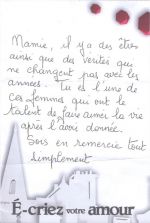 Mamie, il y a des êtres
ainsi que des vérités qui
ne changent pas avec les
années. Tu es l'une de
ces femmes qui ont le
talent de faire aimer la vie
après l'avoir donnée.
Sois en remerciée tout
simplement.
É-criez votre amour